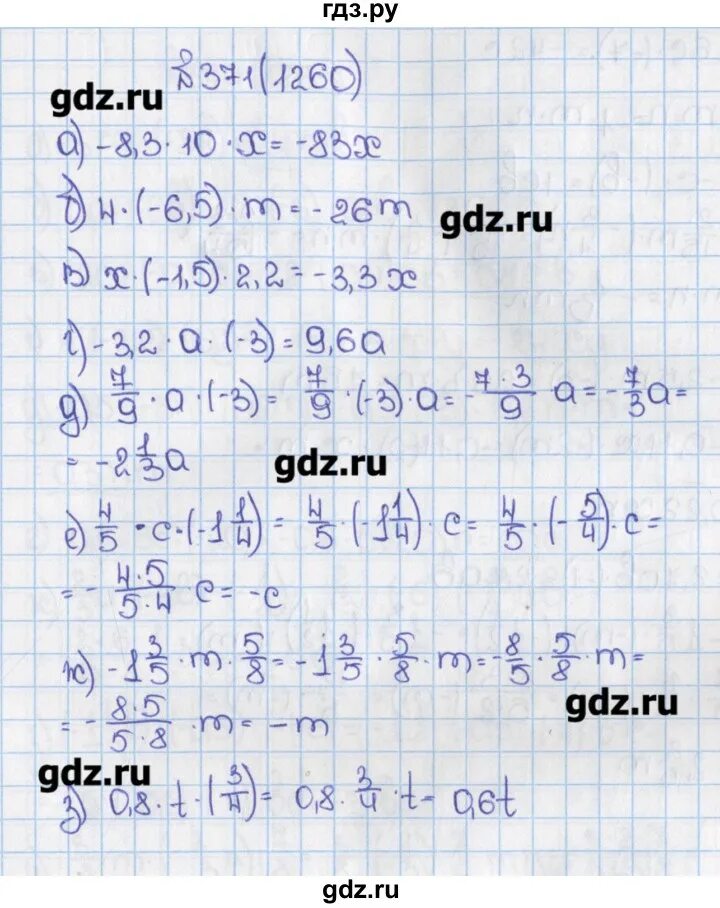 гдз.ру
№371(1260)
gdz.ru
а) -8,3·10·x=-83x
б) 4·(-6,5)·m=-26m
gdz.ru
в) x·(-1,5)·2,2=-3,3x
г) -3,2·a·(-3)=9,6a
д) 7/9·a·(-3)= 7/9·(-3)·a=-7·3/9·a=-7/3a=
=-2 1/3a
gdz.ru
е) 4/5·c·(-1 1/4)= 4/5·(-1 1/4)·c= 4/5·(-5/4)·c=
=-4·5/5·4·c=-c
ж) -1 3/5·m·5/8=-1 3/5·5/8·m=-8/5·5/8·m=
gdz.ru
=-8·5/5·8·m=-m
gdz.ru
з) 0,8·t·(3/4)= 0,8·3/4·t= 0,6t
gdz.ru